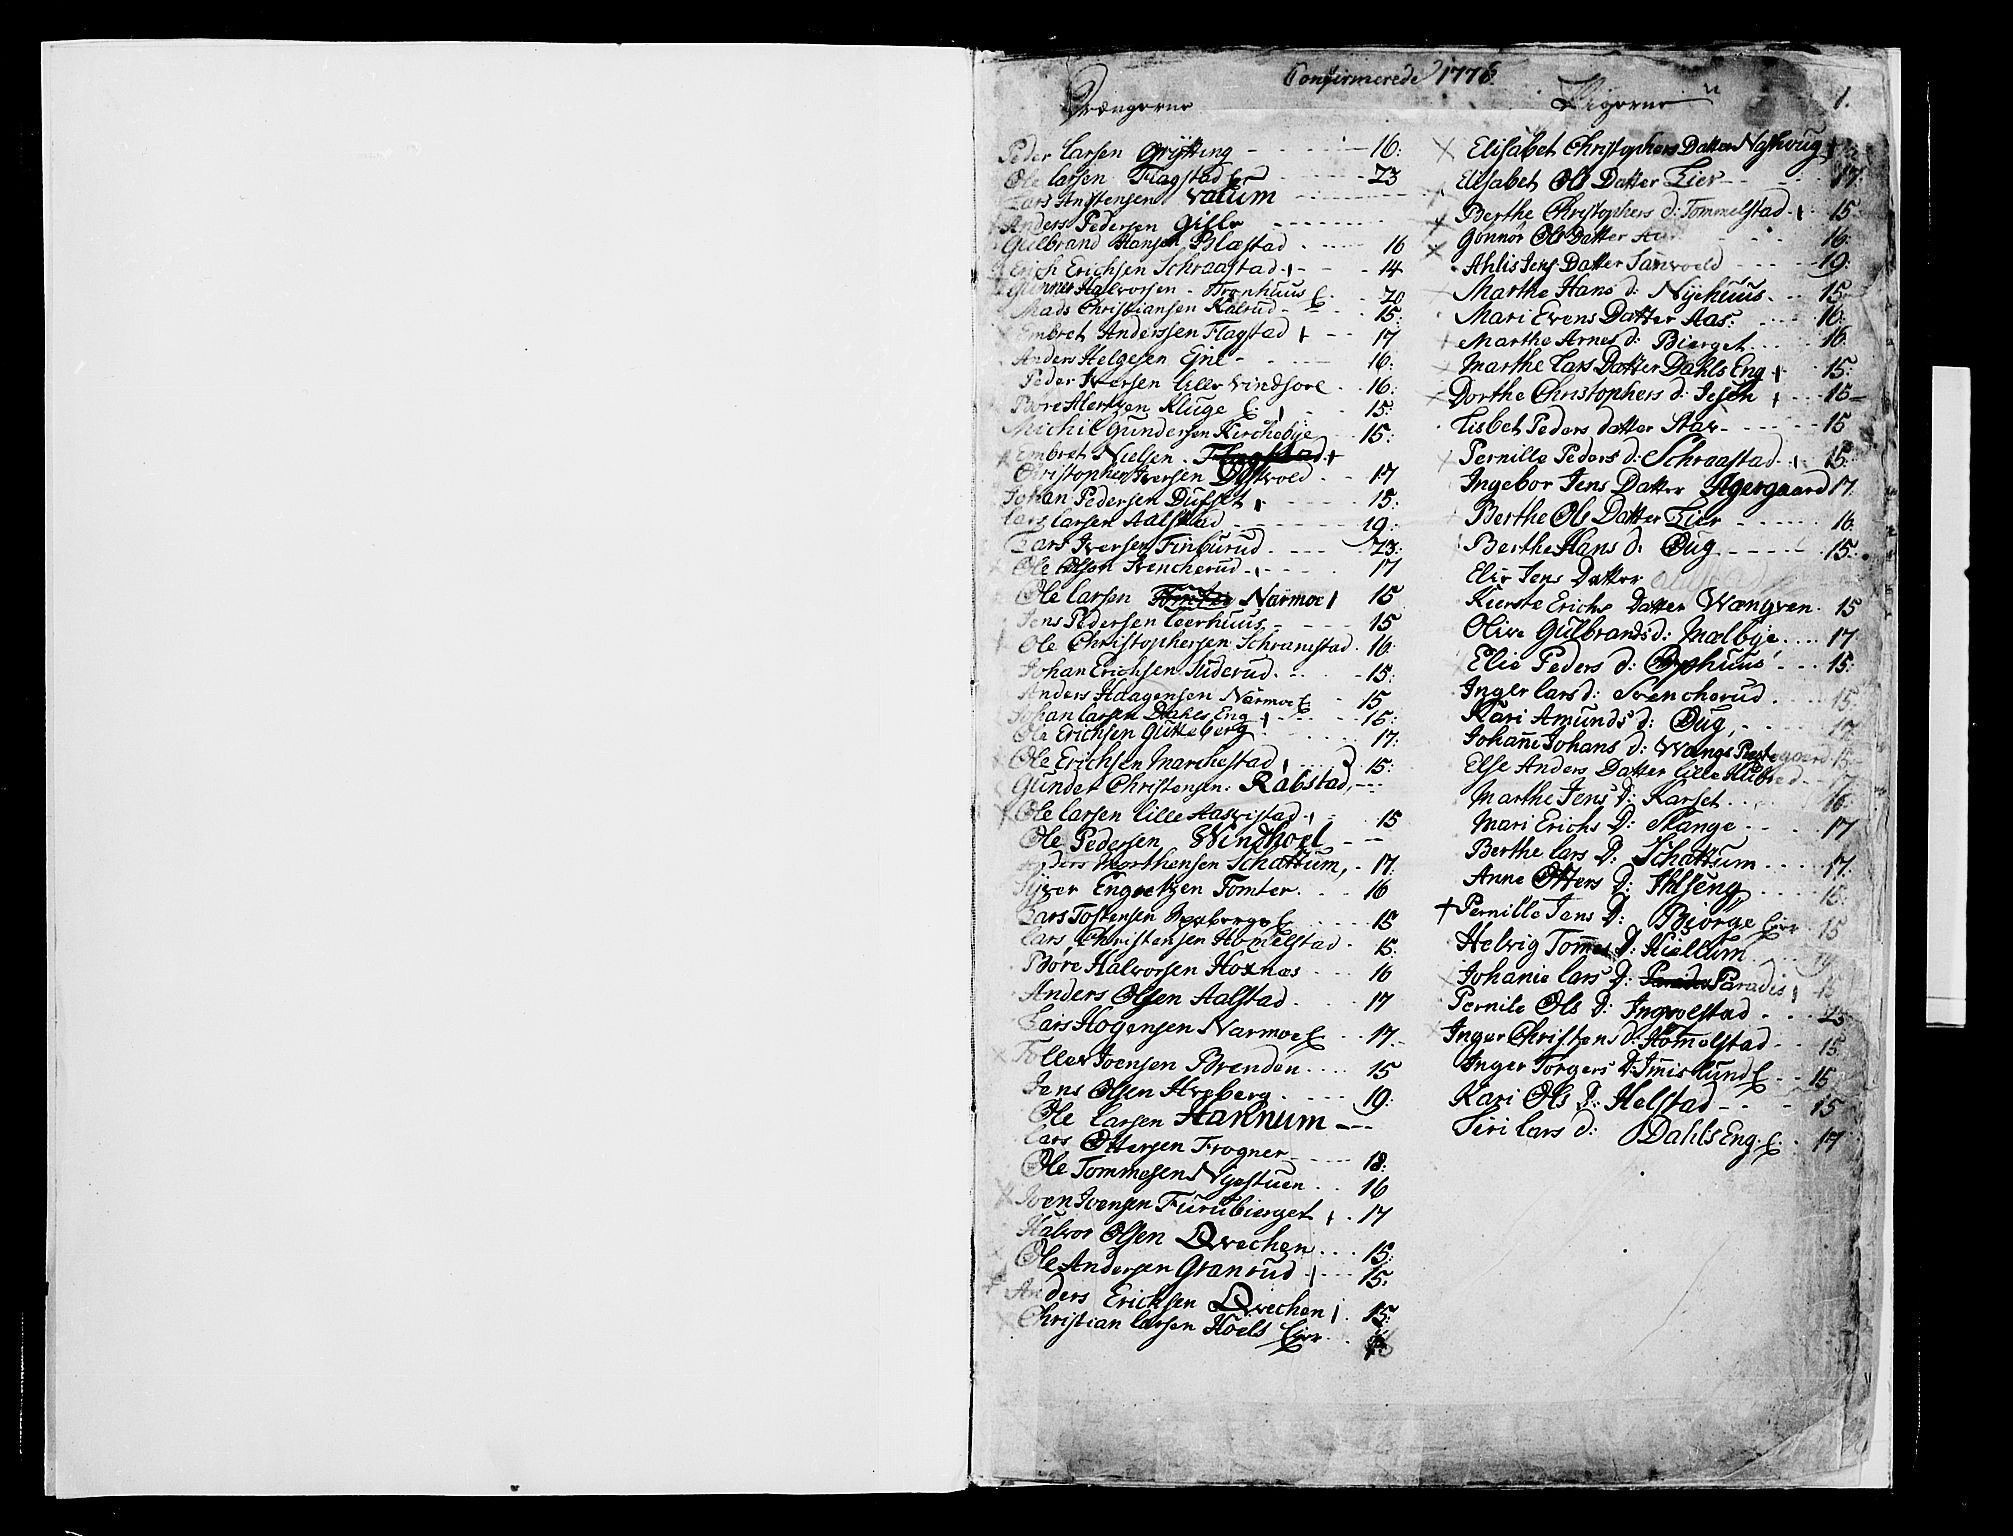 Confirmerede 1776
Drængerne
Peder Larsen Grÿtting 16:
Ole Larsen Flagstad E 23
Lars Anstensen Valum
Anders Pedersen Gille
Gulbrand Hansen Blæstad 16
Erich Erichsen Schraastad 14
Gunner Halvorsen Tronhuus E. 20
Mads Christiansen Kalrud 15:
Embret Anderssen Flagstad 17
Anders Helgesen Ejne 16:
Peder Iversen Lille Vindjore 16:
Børe Hertzen Kluge E: 15:
Michil Gundersen Kirchebÿe 15:
Embret Nielsen Flagstad
Christopher Iversen Dÿstvold 17
Johan Pedersen Dufset 15:
Lars Larsen Aalstad 19:
Lars Iversen Finburud 23:
Ole Olsen Svencherud 17
Ole Larsen Narmoe 15
Jens Pedersen Leerhuus 15
Ole Christophersen Schramstad 16
Johan Erichsen Suderud 15:
Anders Haagensen Narmoe E 15
Johan Larsen Dahls Eng 15:
Ole Erichsen Gutteberg 17:
Ole Erichsen Marchestad 15:
Gunder Christensen Rabstad
Ole Larsen Lille Aasvistad 15
Ole Pedersen Windhoel
Anders Morthensen Schattum 17
Siver Engretzen Tomter 16
Lars Tostensen E 15
Lars Christensen Homelstad 15:
Børe Halvorsen Hoxnæs 16
Anders Olsen Aalstad 17
Lars Hogensen Narmoe E 17
Tollev Joensen Brenden 15
Jens Olsen Hveberg 19:
Ole Larsen Harnum
Lars Ottersen Frogner 18:
Ole Tommesen Nÿestuen 16
Iven Ivensen Furubierget 17
Halvor Olsen Qvechen 15:
Ole Andersen Granrud 15:
Anders Erichsen Qvechen 15:
Christian Larsen Hoels Eier
Pigerne 1.
Elisabet Christophers Datter Nashoug
Elisabet Ols Datter Lier 17
Berthe Christophers d: Tommelstad 15
Gonnor Ols Datter 16:
Ahlis Jens Datter Sanvoeld 19:
Marthe Hans d: Nÿehuus 15
Mari Evens Datter Aas: 16:
Marthe Arnes d: Bierget 16
Marthe Lars Datter Dahls Eng 15:
Dorthe Christophers d: Jesen 15
Lisbet Peders datter Star 15
Pernille Peders d: Schraastad 15:
Ingebor Jens Datter Agergaard 17
Berthe Ols Datter Lier 16
Berthe Hans d: Oug 15
Elie Jens Datter
Kierste Erichs Datter Wængven 15
Olive Gulbrands d: Mælbÿe 17
Elie Peders d: 15:
Inger Lars d: Svencherud 15
Kari Amunds d: Oug 17
Johane Johans d: Wangs Prestegaard 15
Else Anders Datter Lille 17
Marthe Jens D: Karset 16
Mari Erichs D: Stange 17
Berthe Lars D: Schattum 17:
Anne Otters D: Ihlseng 15:
Pernille Jens D: Biørge Eier 15
Helvig Tommes D: Hiellum 19
Johanie Lars D: Paradis 15
Pernile Ols D: Ingvolstad 25
Inger Christens d: Homelstad 15
Inger Torgers D: Imislund E 15
Kari Ols D: Helstad 15
Siri Lars d: Dahls Eng E. 17